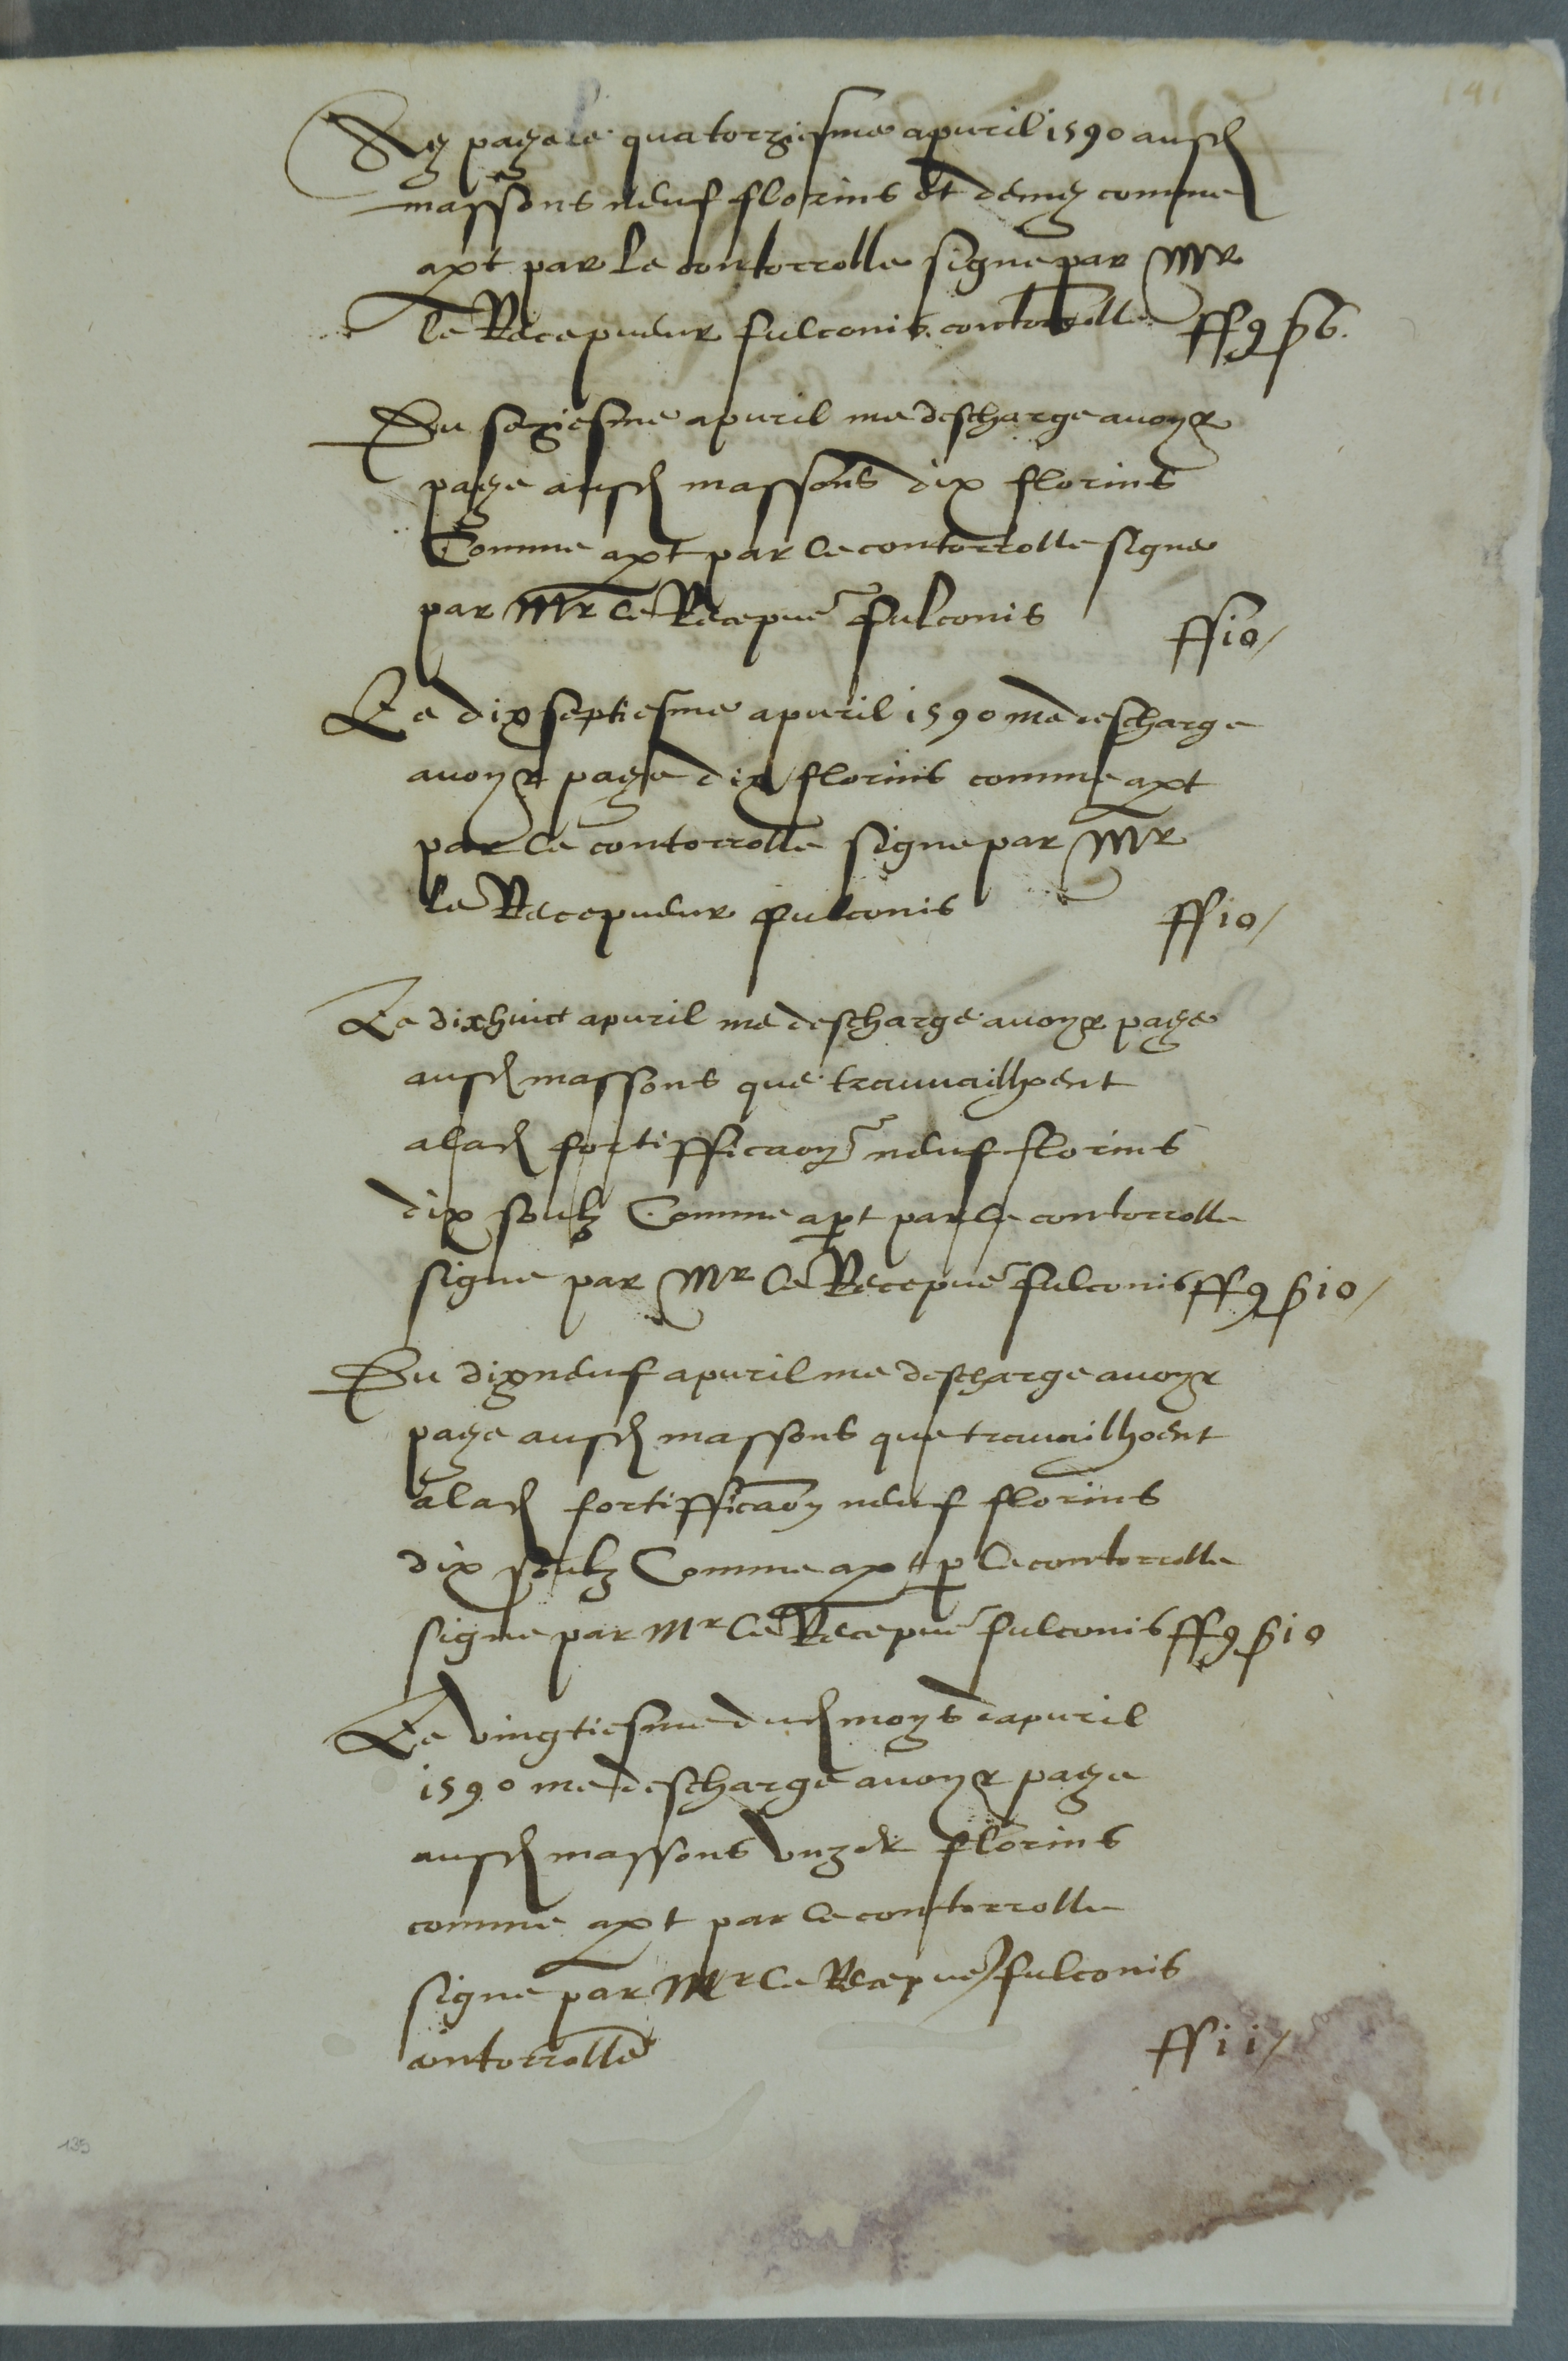 141
Ay paye le quatorziesme apvril 1590 ausd
massons neuf florins et demy comme
apt par le contorrolle signe par Mr
le Recepveur fulconis contorrolle ff 9 s 6.
Du seziesme apvril me descharge avoyr
paye ausd massons dix florins
Comme apt par le contorrolle signe
par Mr le Recepve fulconis ff 10/
Le dixseptiesme apvril 1590 me descharge
avoyr paye dix florins comme apt
par le contorrolle signe par Mr
le Recepveur fulconis ff 10/
Le dixhuict apvril me descharge avoyr paye
ausd massons que travvailhoent
a lad fortifficaon neuf florins
dix soulz Comme apt par le contorrolle
signe par Mr le Recepve fulconis ff 9 s 10/
Du dixneuf apvril me descharge avoyr
paye ausd massons que travailhoent
a lad fortifficaon neuf florins
dix soulz Comme apt p le contorrolle
signe par Mr le Recepve fulconis ff 9 s 10
Le vingtiesme dud moys dapvril
1590 me descharge avoyr paye
ausd massons unze florins
comme apt par le contorrolle
signe par Mr le Recepve fulconis
contorrolle ff 11/
135